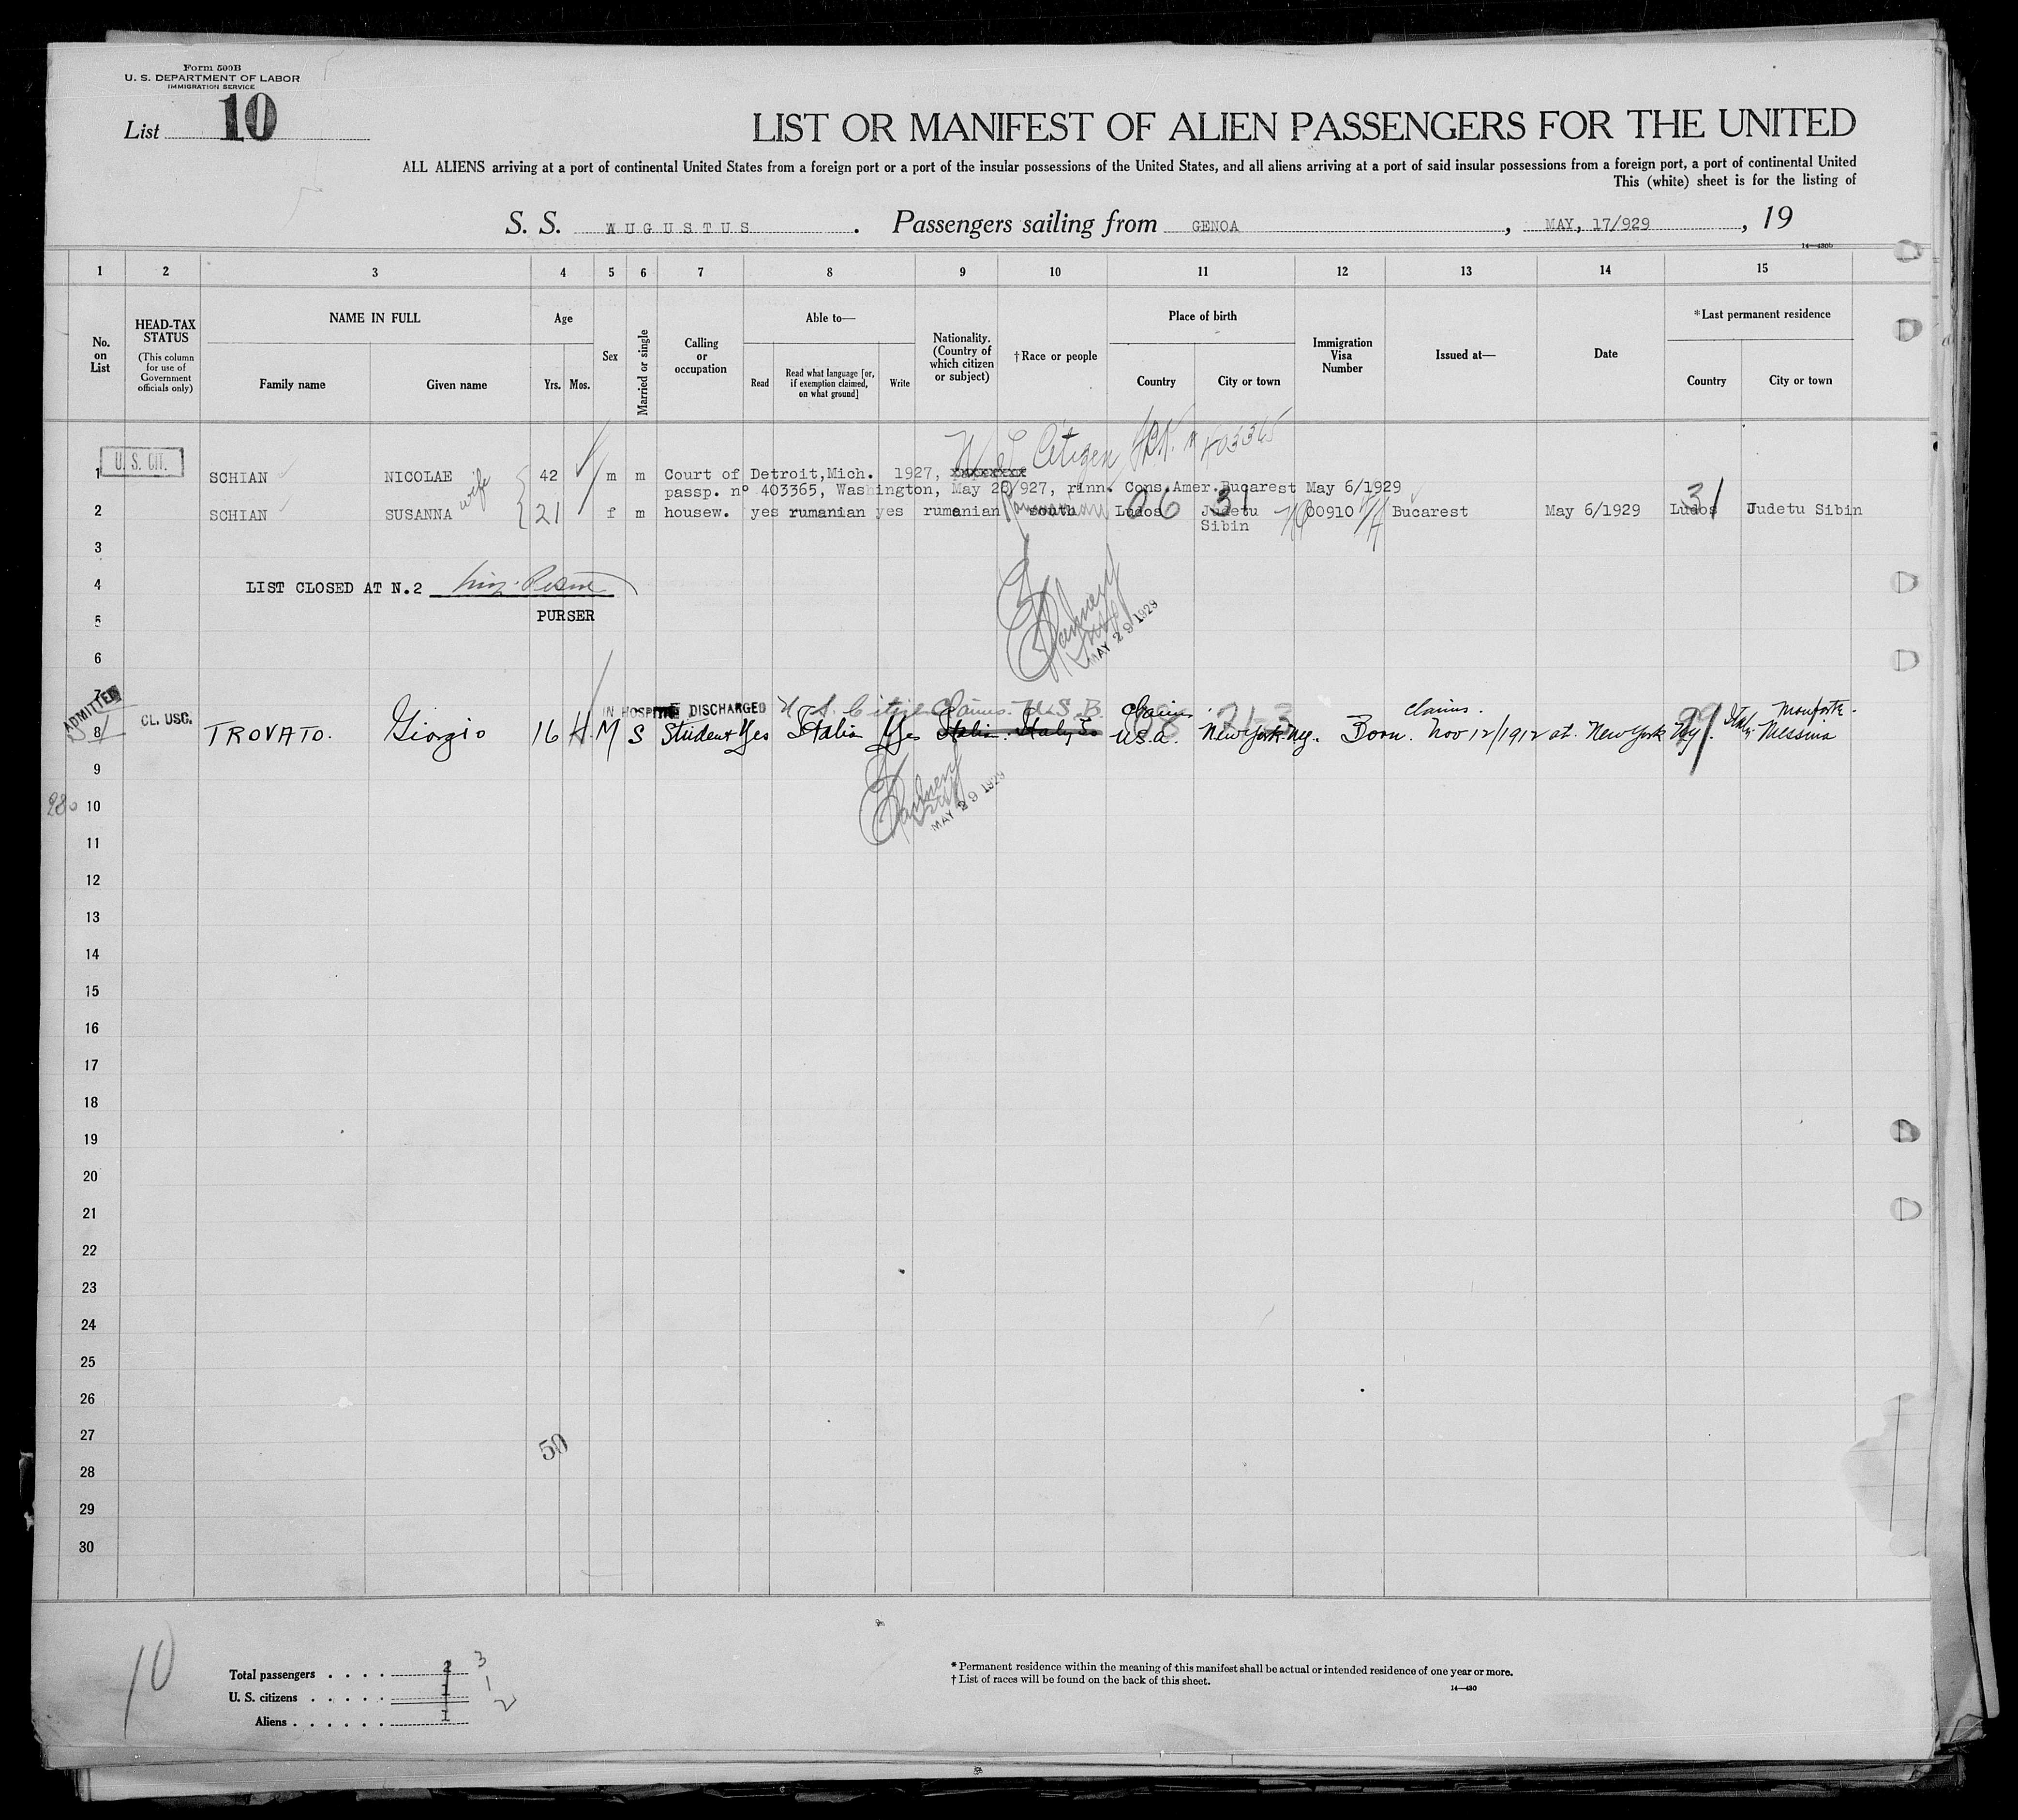 Form 500B
U. S. DEPARTMENT OF LABOR
IMMIGRATION SERVICE
List 10
LIST OR MANIFEST OF ALIEN PASSENGERS FOR THE UNITED
ALL ALIENS arriving at a port of continental United States from a foreign port or a port of the insular possessions of the United States, and all aliens arriving at a port of said insular possessions from a foreign port, a port of continental United
This (white) sheet is for the listing of
S. S. AUGUSTUS . Passengers sailing from GENOA , MAY, 17/929 , 19
14—430b
1 2 3 4 5 6 7 8 9 10 11 12 13 14 15
No. on List
HEAD-TAX STATUS (This column for use of Government officials only)
NAME IN FULL
Family name Given name
Age
Yrs. Mos.
Sex
Married or single
Calling or occupation
Able to—
Read
Read what language [or, if exemption claimed, on what ground]
Write
Nationality. (Country of which citizen or subject)
†Race or people
Place of birth
Country City or town
Immigration Visa Number
Issued at—
Date
*Last permanent residence
Country City or town
U S Citizen 403365
1 U. S. CIT. SCHIAN NICOLAE 42 m m Court of Detroit, Mich. 1927, xxxxxxxx
wife
passp. n° 403365, Washington, May 28/927, rinn. Cons.Amer.Bucarest May 6/1929
2 SCHIAN SUSANNA 21 f m housew. yes rumanian yes rumanian south Ludos 06 Judetu 31 00910 Bucarest May 6/1929 Ludos 31 Judetu Sibin
Sibin
3
4 LIST CLOSED AT N.2
PURSER
5
MAY 29 1929
6
7
ADMITTED
IN HOSPITAL DISCHARGED U. S. Citizen Claims U.S.B. Claims Claims. Monforte.
8 CL. USC. TROVATO. Giorgio 16 M S Student Yes Italia Yes Italia. Italy So U.S.A. New York Ny. Born. Nov 12/1912 at. New York Ny. Italy Messina
9
MAY 29 1929
10
11
12
13
14
15
16
17
18
19
20
21
22
23
24
25
26
27
50
28
29
30
10
Total passengers . . . . 2 3
U. S. citizens . . . . . 1 1
Aliens . . . . . . 1 2
* Permanent residence within the meaning of this manifest shall be actual or intended residence of one year or more.
† List of races will be found on the back of this sheet.
14—430